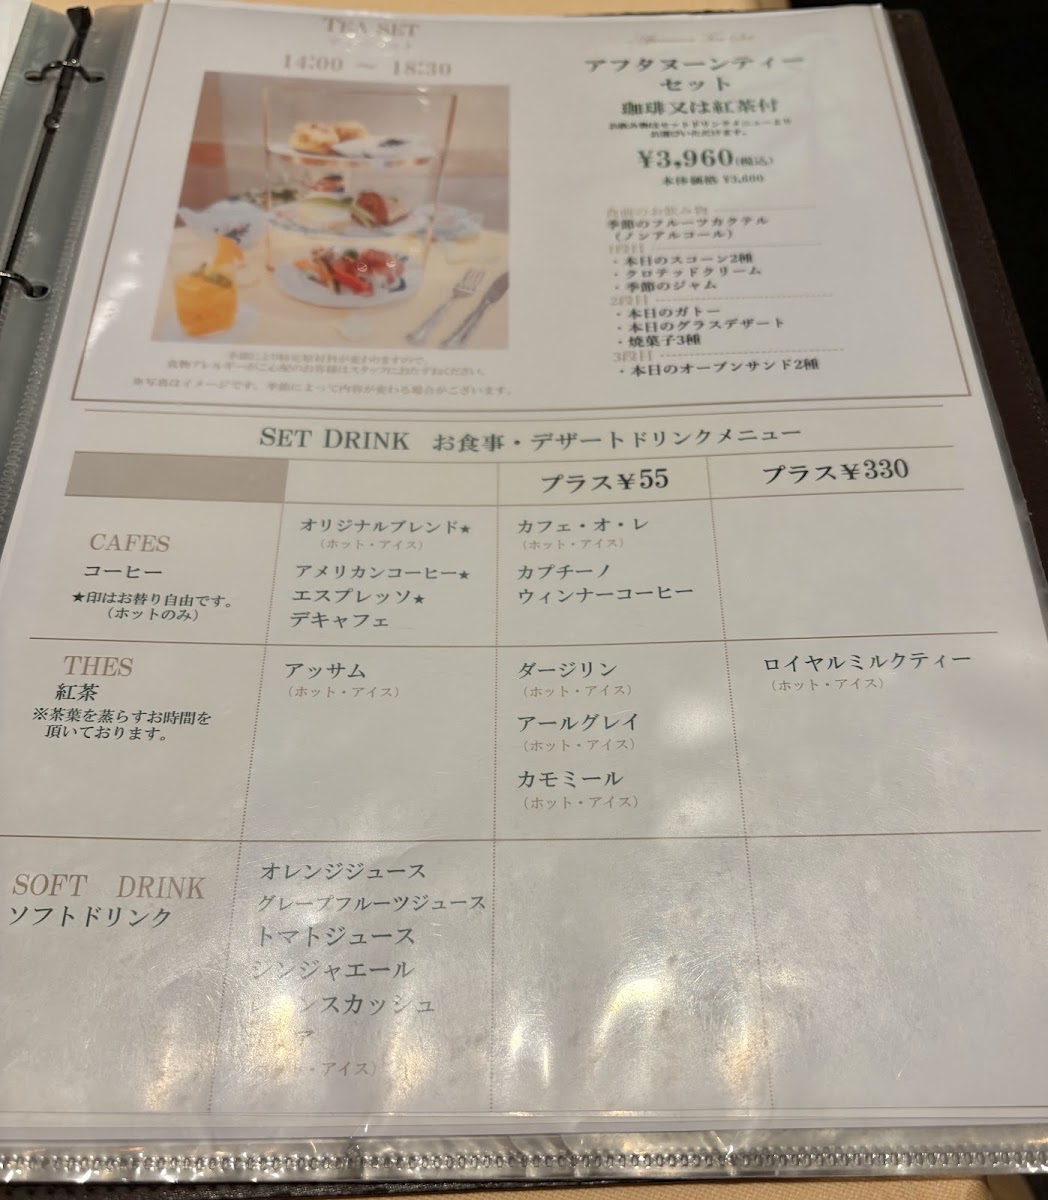 TEA SET
14:00 ～ 18:30
Afternoon Tea Set
アフタヌーンティー
セット
珈琲又は紅茶付
お飲み物はセットドリンクメニューより
お選びいただけます。
¥3,960(税込)
本体価格 ¥3,600
食前のお飲み物
季節のフルーツカクテル
（ノンアルコール）
1段目
・本日のスコーン2種
・クロテッドクリーム
・季節のジャム
2段目
・本日のガトー
・本日のグラスデザート
・焼菓子3種
3段目
・本日のオープンサンド2種
季節により特定原材料が変わりますので、
食物アレルギーがご心配のお客様はスタッフにおたずねください。
※写真はイメージです。季節によって内容が変わる場合がございます。
SET DRINK お食事・デザートドリンクメニュー
プラス¥55
プラス¥330
CAFES
コーヒー
★印はお替り自由です。
（ホットのみ）
オリジナルブレンド★
（ホット・アイス）
アメリカンコーヒー★
エスプレッソ★
デキャフェ
カフェ・オ・レ
（ホット・アイス）
カプチーノ
ウィンナーコーヒー
THES
紅茶
※茶葉を蒸らすお時間を
頂いております。
アッサム
（ホット・アイス）
ダージリン
（ホット・アイス）
アールグレイ
（ホット・アイス）
カモミール
（ホット・アイス）
ロイヤルミルクティー
（ホット・アイス）
SOFT DRINK
ソフトドリンク
オレンジジュース
グレープフルーツジュース
トマトジュース
ジンジャエール
ンスカッシュ
ト・アイス）